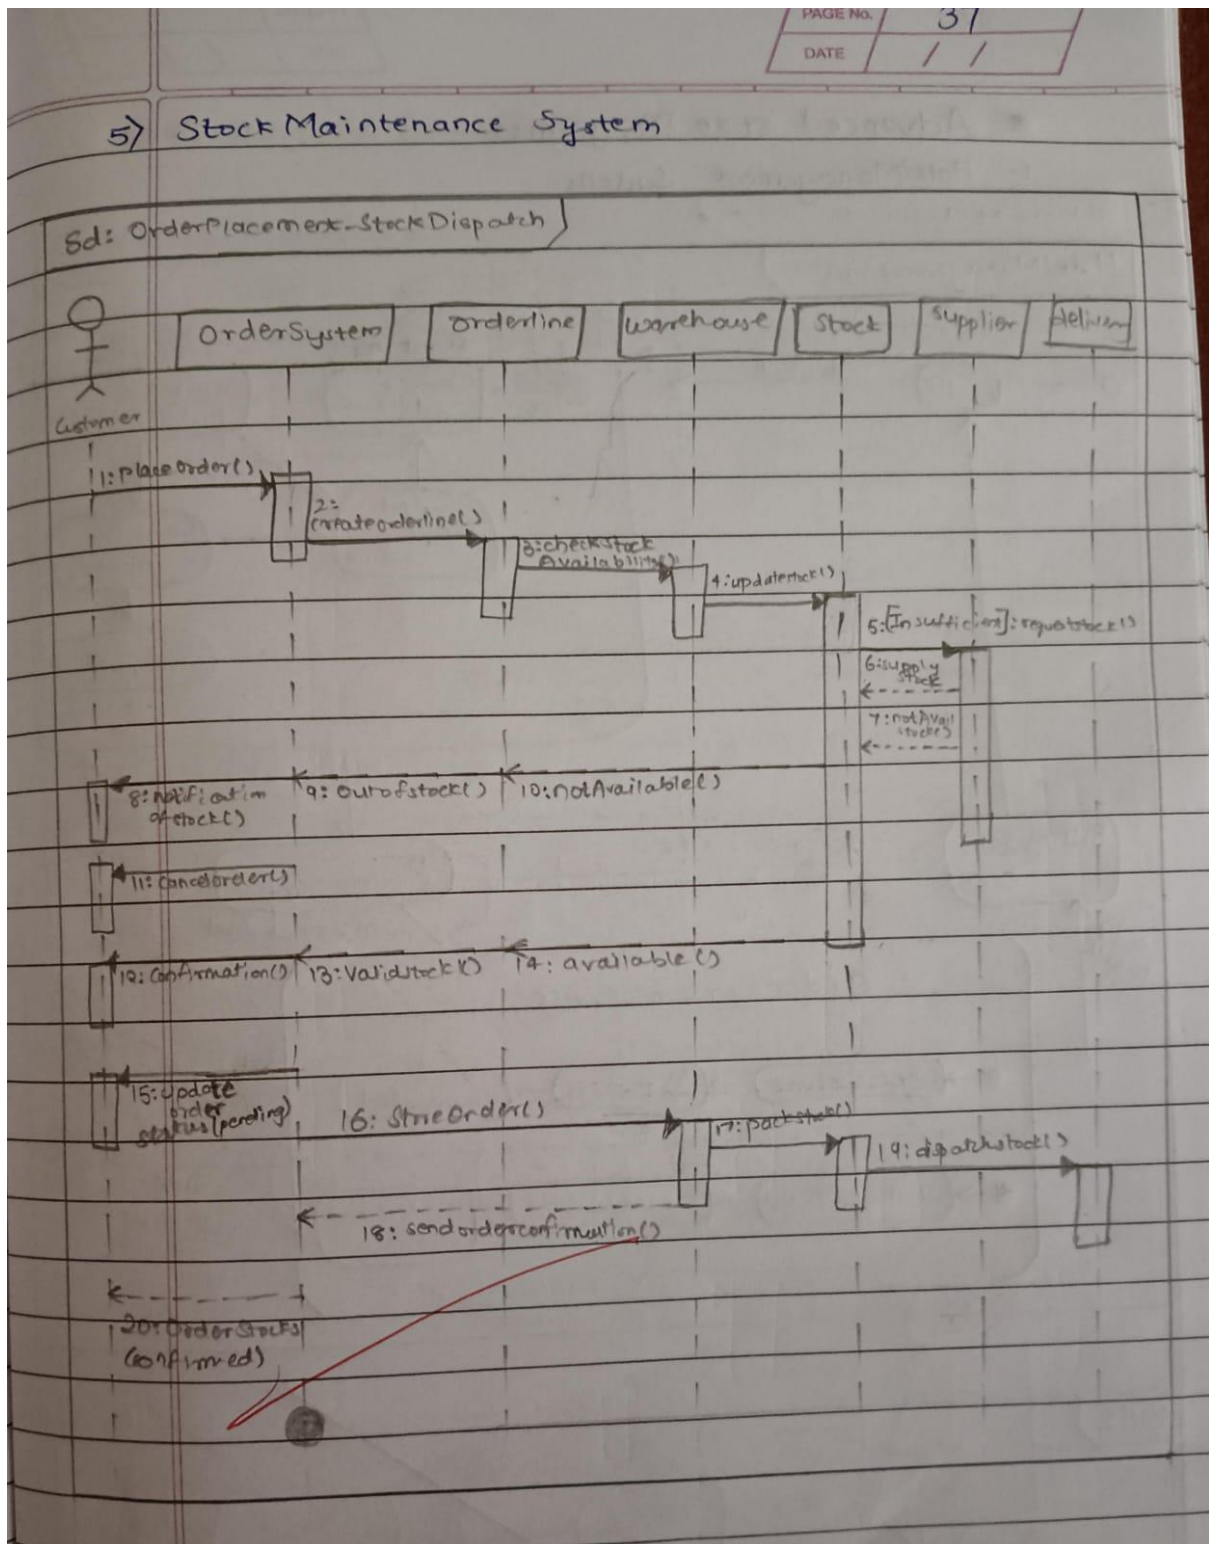 PAGE No. 37
DATE / /
5) Stock Maintenance System
Sd: OrderPlacement-StockDispatch
OrderSystem
orderline
warehouse
Stock
supplier
Customer
1: placeOrder()
2:
createorderline()
3:checkstock
Availability()
4:updatestock()
5:[Insufficient]:
6:supply
stock
7:notAvail
8:notification
ofstock()
9: outofstock()
10:notAvailable()
11:cancelorder()
12:confirmation()
13:Validstock()
14: available()
15:update
order
status(pending)
16: StoreOrder()
17:packstock()
19:dispatchstock()
18: sendorderconfirmation()
20:OrderStocks
(confirmed)